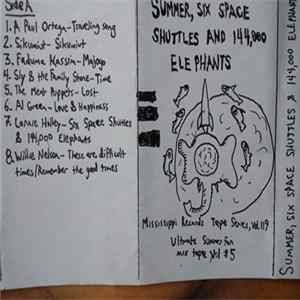 Side A
1. A Paul Ortega - Traveling song
2. Sikumiut - Sikumiut
3. Faduma Kassim - Majogo
4. Sly & the Family Stone - Time
5. The Meat Puppets - Lost
6. Al Green - Love & Happiness
7. Lonnie Holley - Six Space Shuttles
& 144,000 Elephants
8. Willie Nelson - These are difficult
times/Remember the good times
SUMMER, SIX SPACE
SHUTTLES AND 144,000
ELEPHANTS
Mississippi Records Tape Series, Vol. 119
Ultimate Summer fun
mix tape Vol #5
SUMMER, SIX SPACE SHUTTLES & 144,000 ELEPHANTS